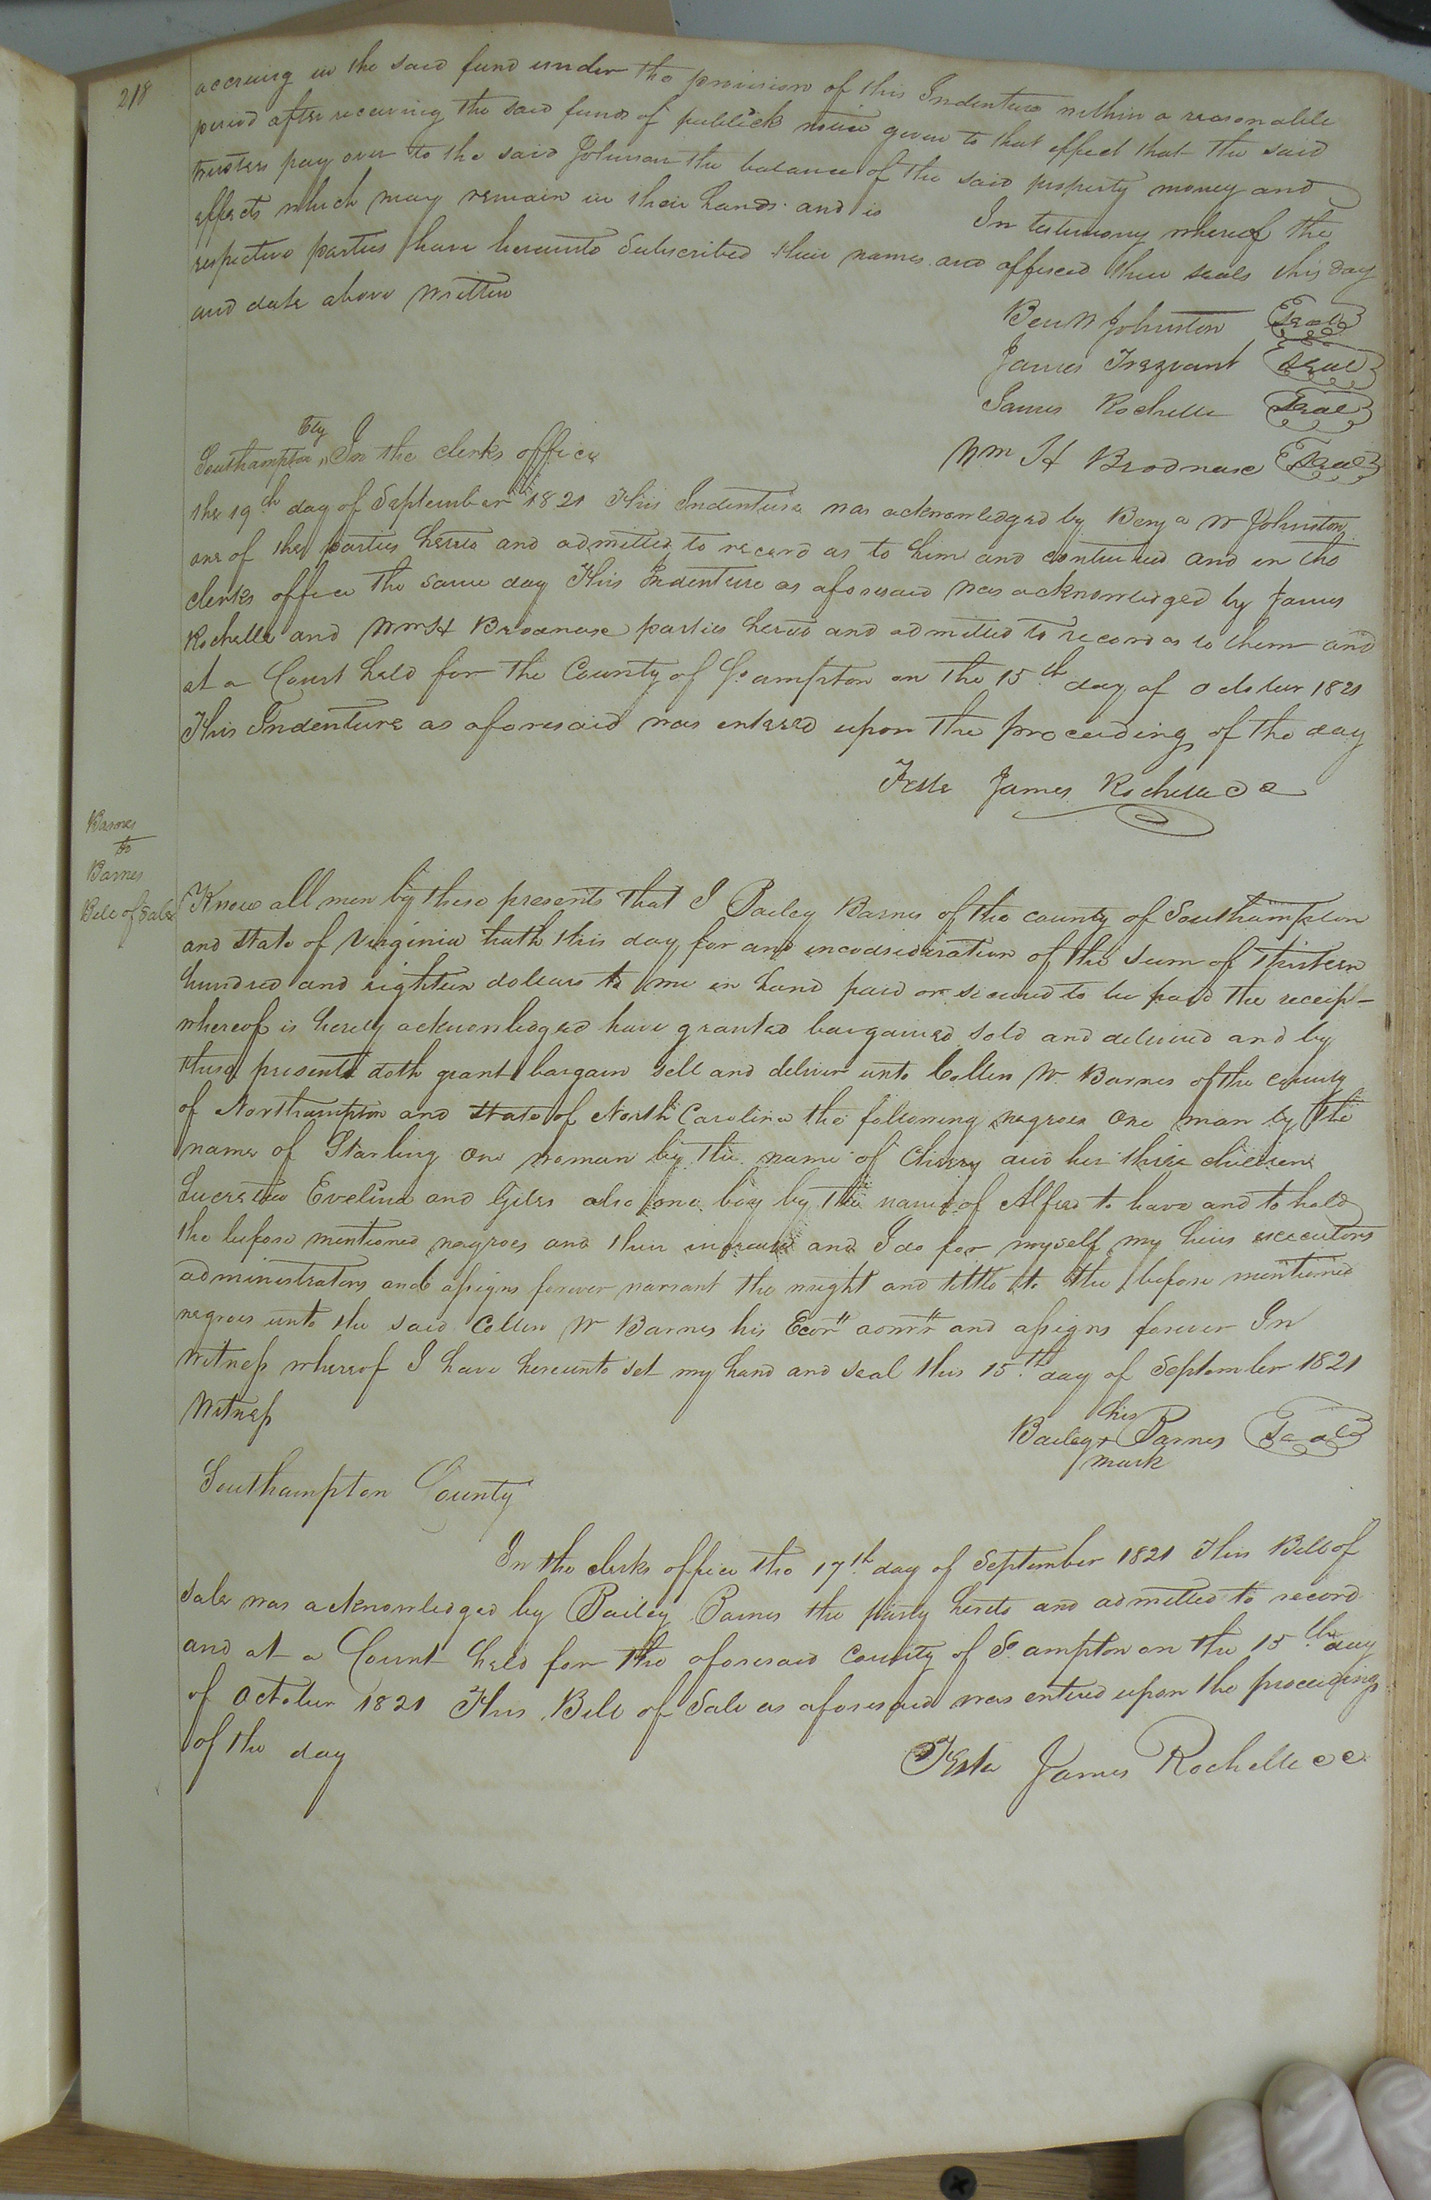 218
accruing in the said fund under the provision of this Indenture within a reasonable
period after receiving the said funds of publick notice given to that effect that the said
trustees pay over to the said Johnson the balance of the said property money and
effects which may remain in their hands and is In testimony whereof the
respective parties have hereunto Subscribed their names and affixed their seals this day
and date above Written
Ben W Johnston Seal
James Trezvant Seal
James Rochelle Seal
Wm H Brodnax Seal
Southampton Cty In the clerks office
the 19th day of September 1821 This Indenture was acknowledged by Benja W Johnston
one of the parties hereto and admitted to record as to him and continued and in the
clerks office the same day This Indenture as aforesaid was acknowledged by James
Rochelle and Wm H Brodnax parties hereto and admitted to record as to them and
at a Court held for the County of So.ampton on the 15th day of October 1821
This Indenture as aforesaid was entered upon the proceedings of the day
Teste James Rochelle cc
Barnes
to
Barnes
Bill of Sale
Know all men by these presents that I Bailey Barnes of the county of Southampton
and state of Virginia hath this day for and inconsideration of the sum of thirteen
hundred and eighteen dollars to me in hand paid or secured to be paid the receipt
whereof is herely acknowledged have granted bargained sold and delivered and by
these presents doth grant bargain sell and deliver unto Collin W. Barnes of the county
of Northampton and state of North Carolina the following negroes One man by the
name of Starling one woman by the name of Cherry and her three children
Lucretia Evelina and Giles also one boy by the name of Alfred to have and to hold
the before mentioned negroes and their increase and I do for myself my heirs executors
administrators and assigns forever warrant the wright and tittle to the before mentioned
negroes unto the said Collin W Barnes his Ecor" aomr" and assigns forever In
Witness whereof I have hereunto set my hand and seal this 15th day of September 1821
Witness
his
Bailey + Barnes Seal
mark
Southampton County
In the clerks office the 17th day of September 1821 This Bill of
sale was acknowledged by Bailey Barnes the party hereto and admitted to record
and at a Court held for the aforesaid County of So.ampton on the 15th day
of October 1821 This Bill of Sale as aforesaid was entered upon the proceedings
of the day
Teste James Rochelle cc